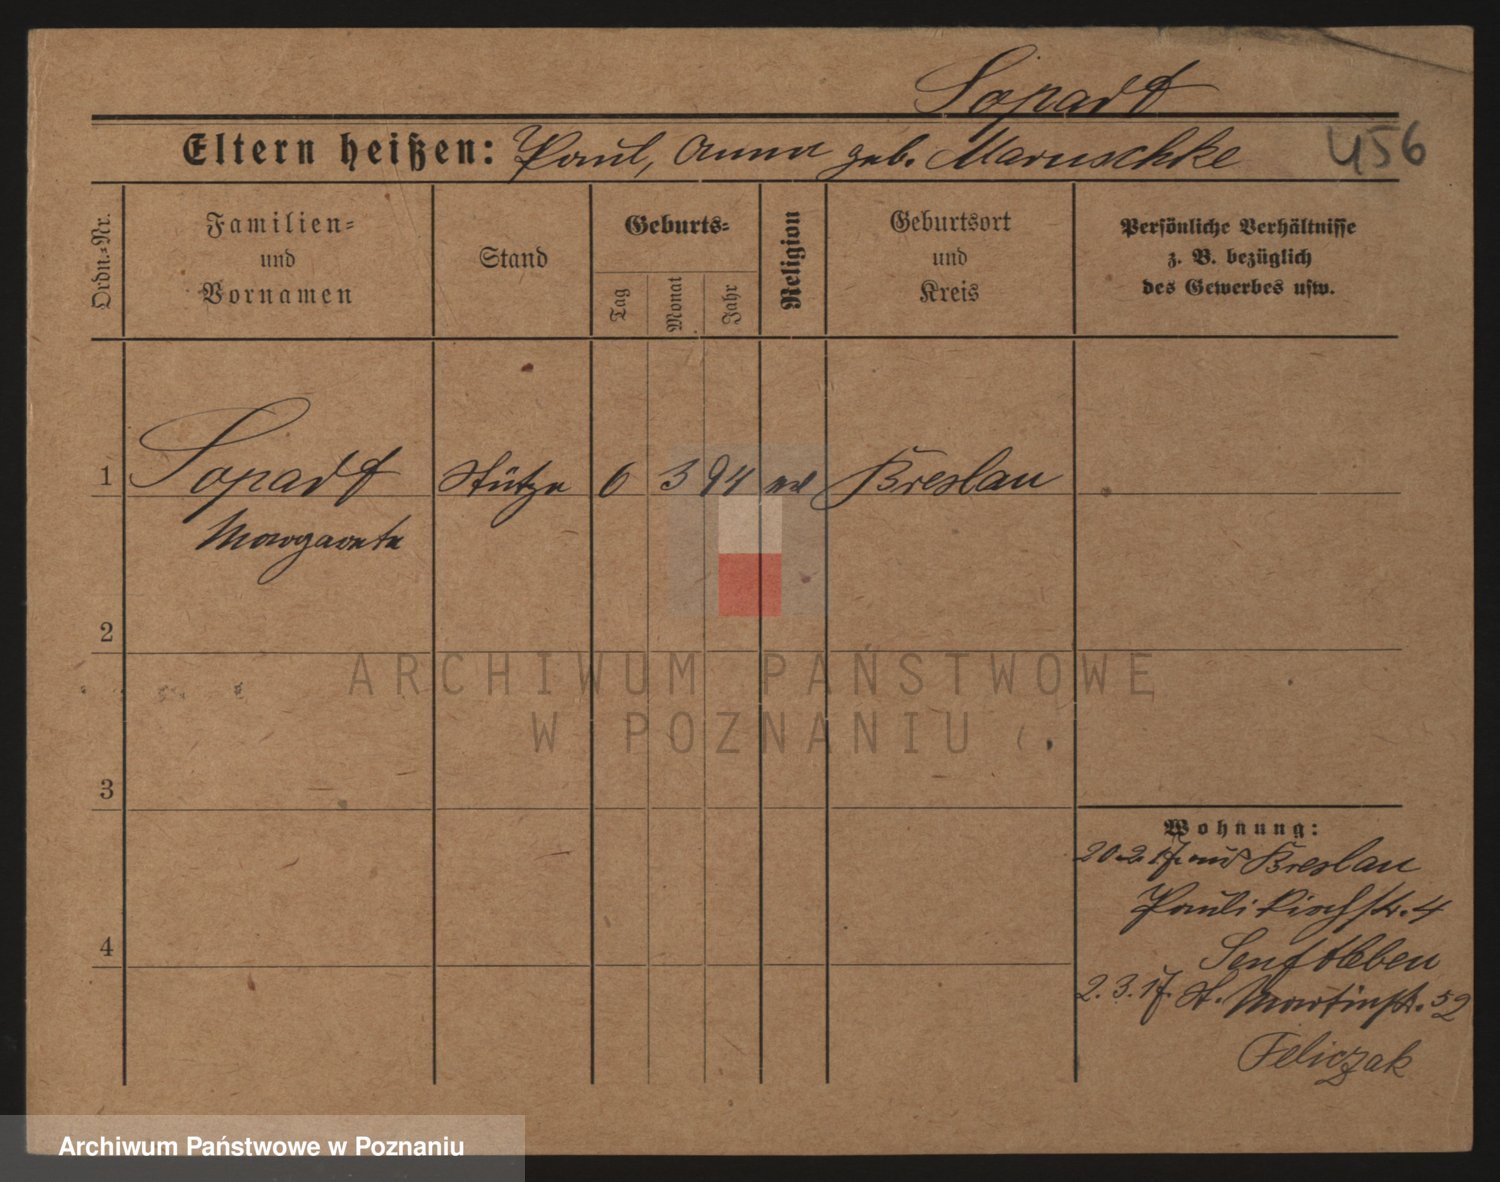 Sopardt
Eltern heißen: Paul, Anna geb. Maruschke
456
Ordn.-Nr.
Familien-
und
Vornamen
Stand
Geburts-
Tag
Monat
Jahr
Religion
Geburtsort
und
Kreis
Persönliche Verhältnisse
z. B. bezüglich
des Gewerbes usw.
1 Sopardt Stütze 6 3 94 ev Breslau
Margarete
2
ARCHIWUM PAŃSTWOWE
W POZNANIU
3
Wohnung:
20.2.17. aus Breslau
Paulikirchstr. 4
Senftleben
4
2.3.17. St. Martinstr. 52
Feliczak
Archiwum Państwowe w Poznaniu